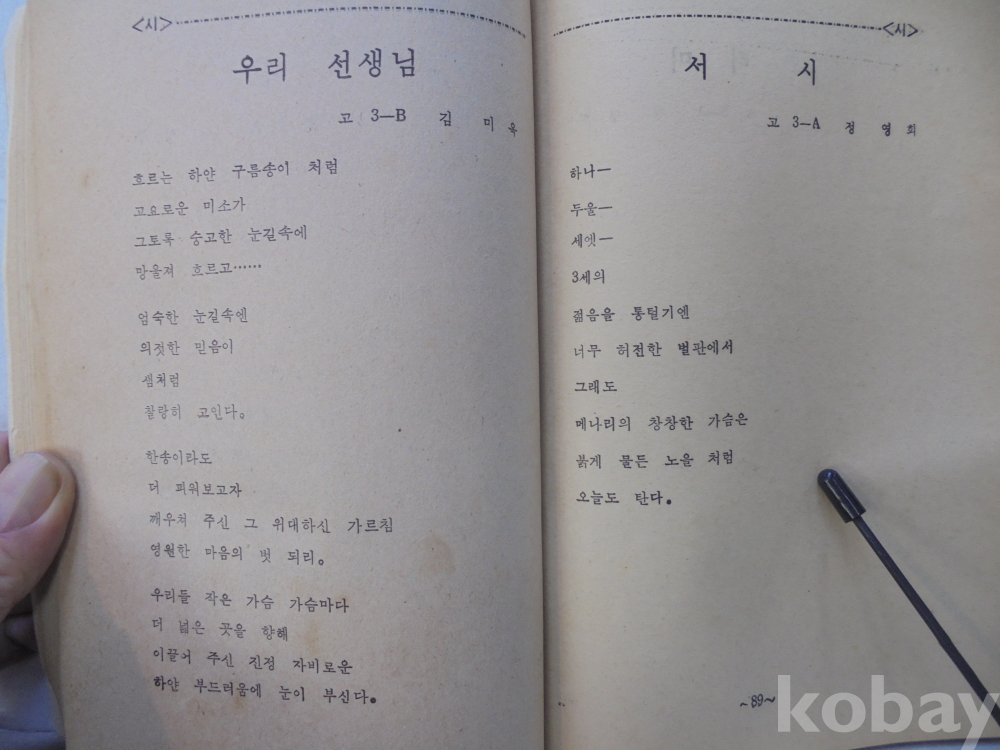 <시>
우리 선생님
고 3—B 김 미 옥
흐르는 하얀 구름송이 처럼
고요로운 미소가
그토록 숭고한 눈길속에
망울져 흐르고……
엄숙한 눈길속엔
의젓한 믿음이
샘처럼
찰랑히 고인다。
한송이라도
더 피워보고자
깨우쳐 주신 그 위대하신 가르침
영원한 마음의 벗 되리。
우리들 작은 가슴 가슴마다
더 넓은 곳을 향해
이끌어 주신 진정 자비로운
하얀 부드러움에 눈이 부신다。
<시>
서 시
고 3—A 정 영 희
하나—
두울—
세엣—
3세의
젊음을 통털기엔
너무 허전한 벌판에서
그래도
메나리의 창창한 가슴은
붉게 물든 노을 처럼
오늘도 탄다。
~89~
kobay